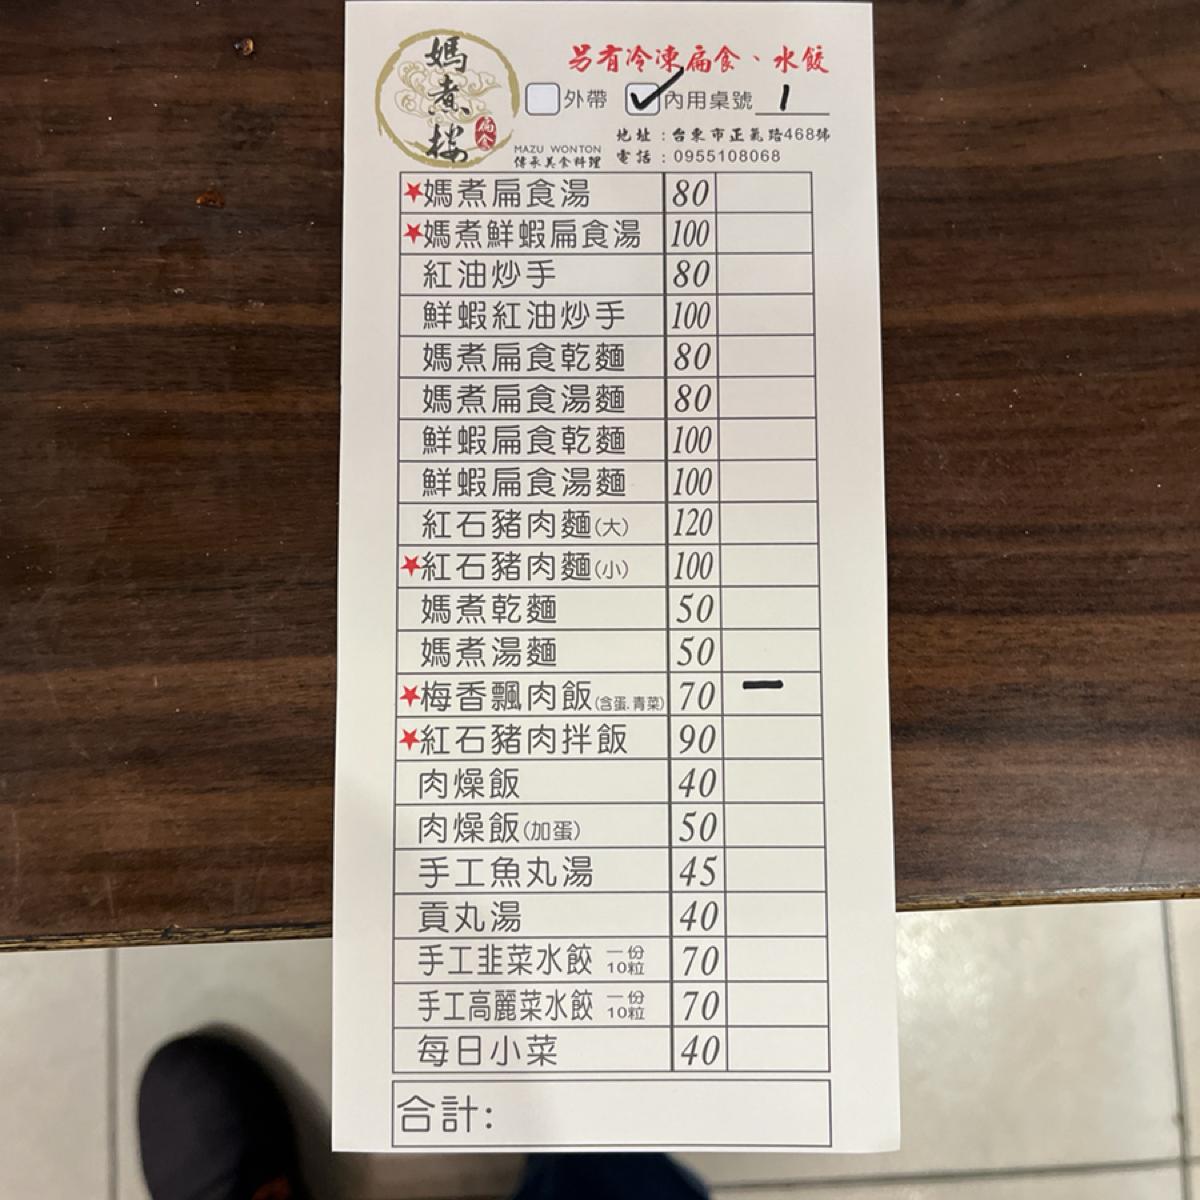 媽煮樓
扁食
MAZU WONTON
傳承美食料理
另有冷凍扁食、水餃
外帶 ✓內用桌號 1
地址:台東市正氣路468號
電話:0955108068
★媽煮扁食湯 80
★媽煮鮮蝦扁食湯 100
紅油炒手 80
鮮蝦紅油炒手 100
媽煮扁食乾麵 80
媽煮扁食湯麵 80
鮮蝦扁食乾麵 100
鮮蝦扁食湯麵 100
紅石豬肉麵(大) 120
★紅石豬肉麵(小) 100
媽煮乾麵 50
媽煮湯麵 50
★梅香飄肉飯(含蛋.青菜) 70 一
★紅石豬肉拌飯 90
肉燥飯 40
肉燥飯(加蛋) 50
手工魚丸湯 45
貢丸湯 40
手工韭菜水餃 一份10粒 70
手工高麗菜水餃 一份10粒 70
每日小菜 40
合計: